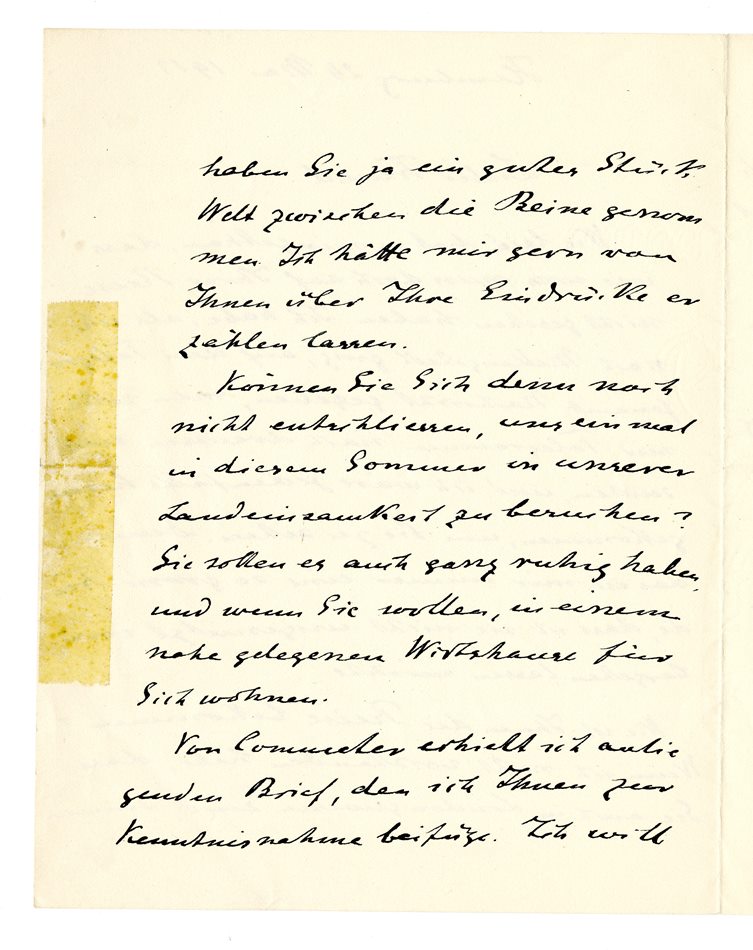 haben Sie ja ein gutes Stück
Welt zwischen die Beine genom
men Ich hätte mir gern von
Ihnen über Ihre Eindrücke er
zählen lassen.
Können Sie Sich denn noch
nicht entschliessen, uns einmal
in diesem Sommer in unserer
Landeinsamkeit zu besuchen?
Sie sollen es auch ganz ruhig haben,
und wenn Sie wollen, in einem
nahe gelegenen Wirtshause für
Sich wohnen.
Von Commeter erhielt ich anlie
genden Brief, den ich Ihnen zur
Kenntnisnahme beifüge. Ich will